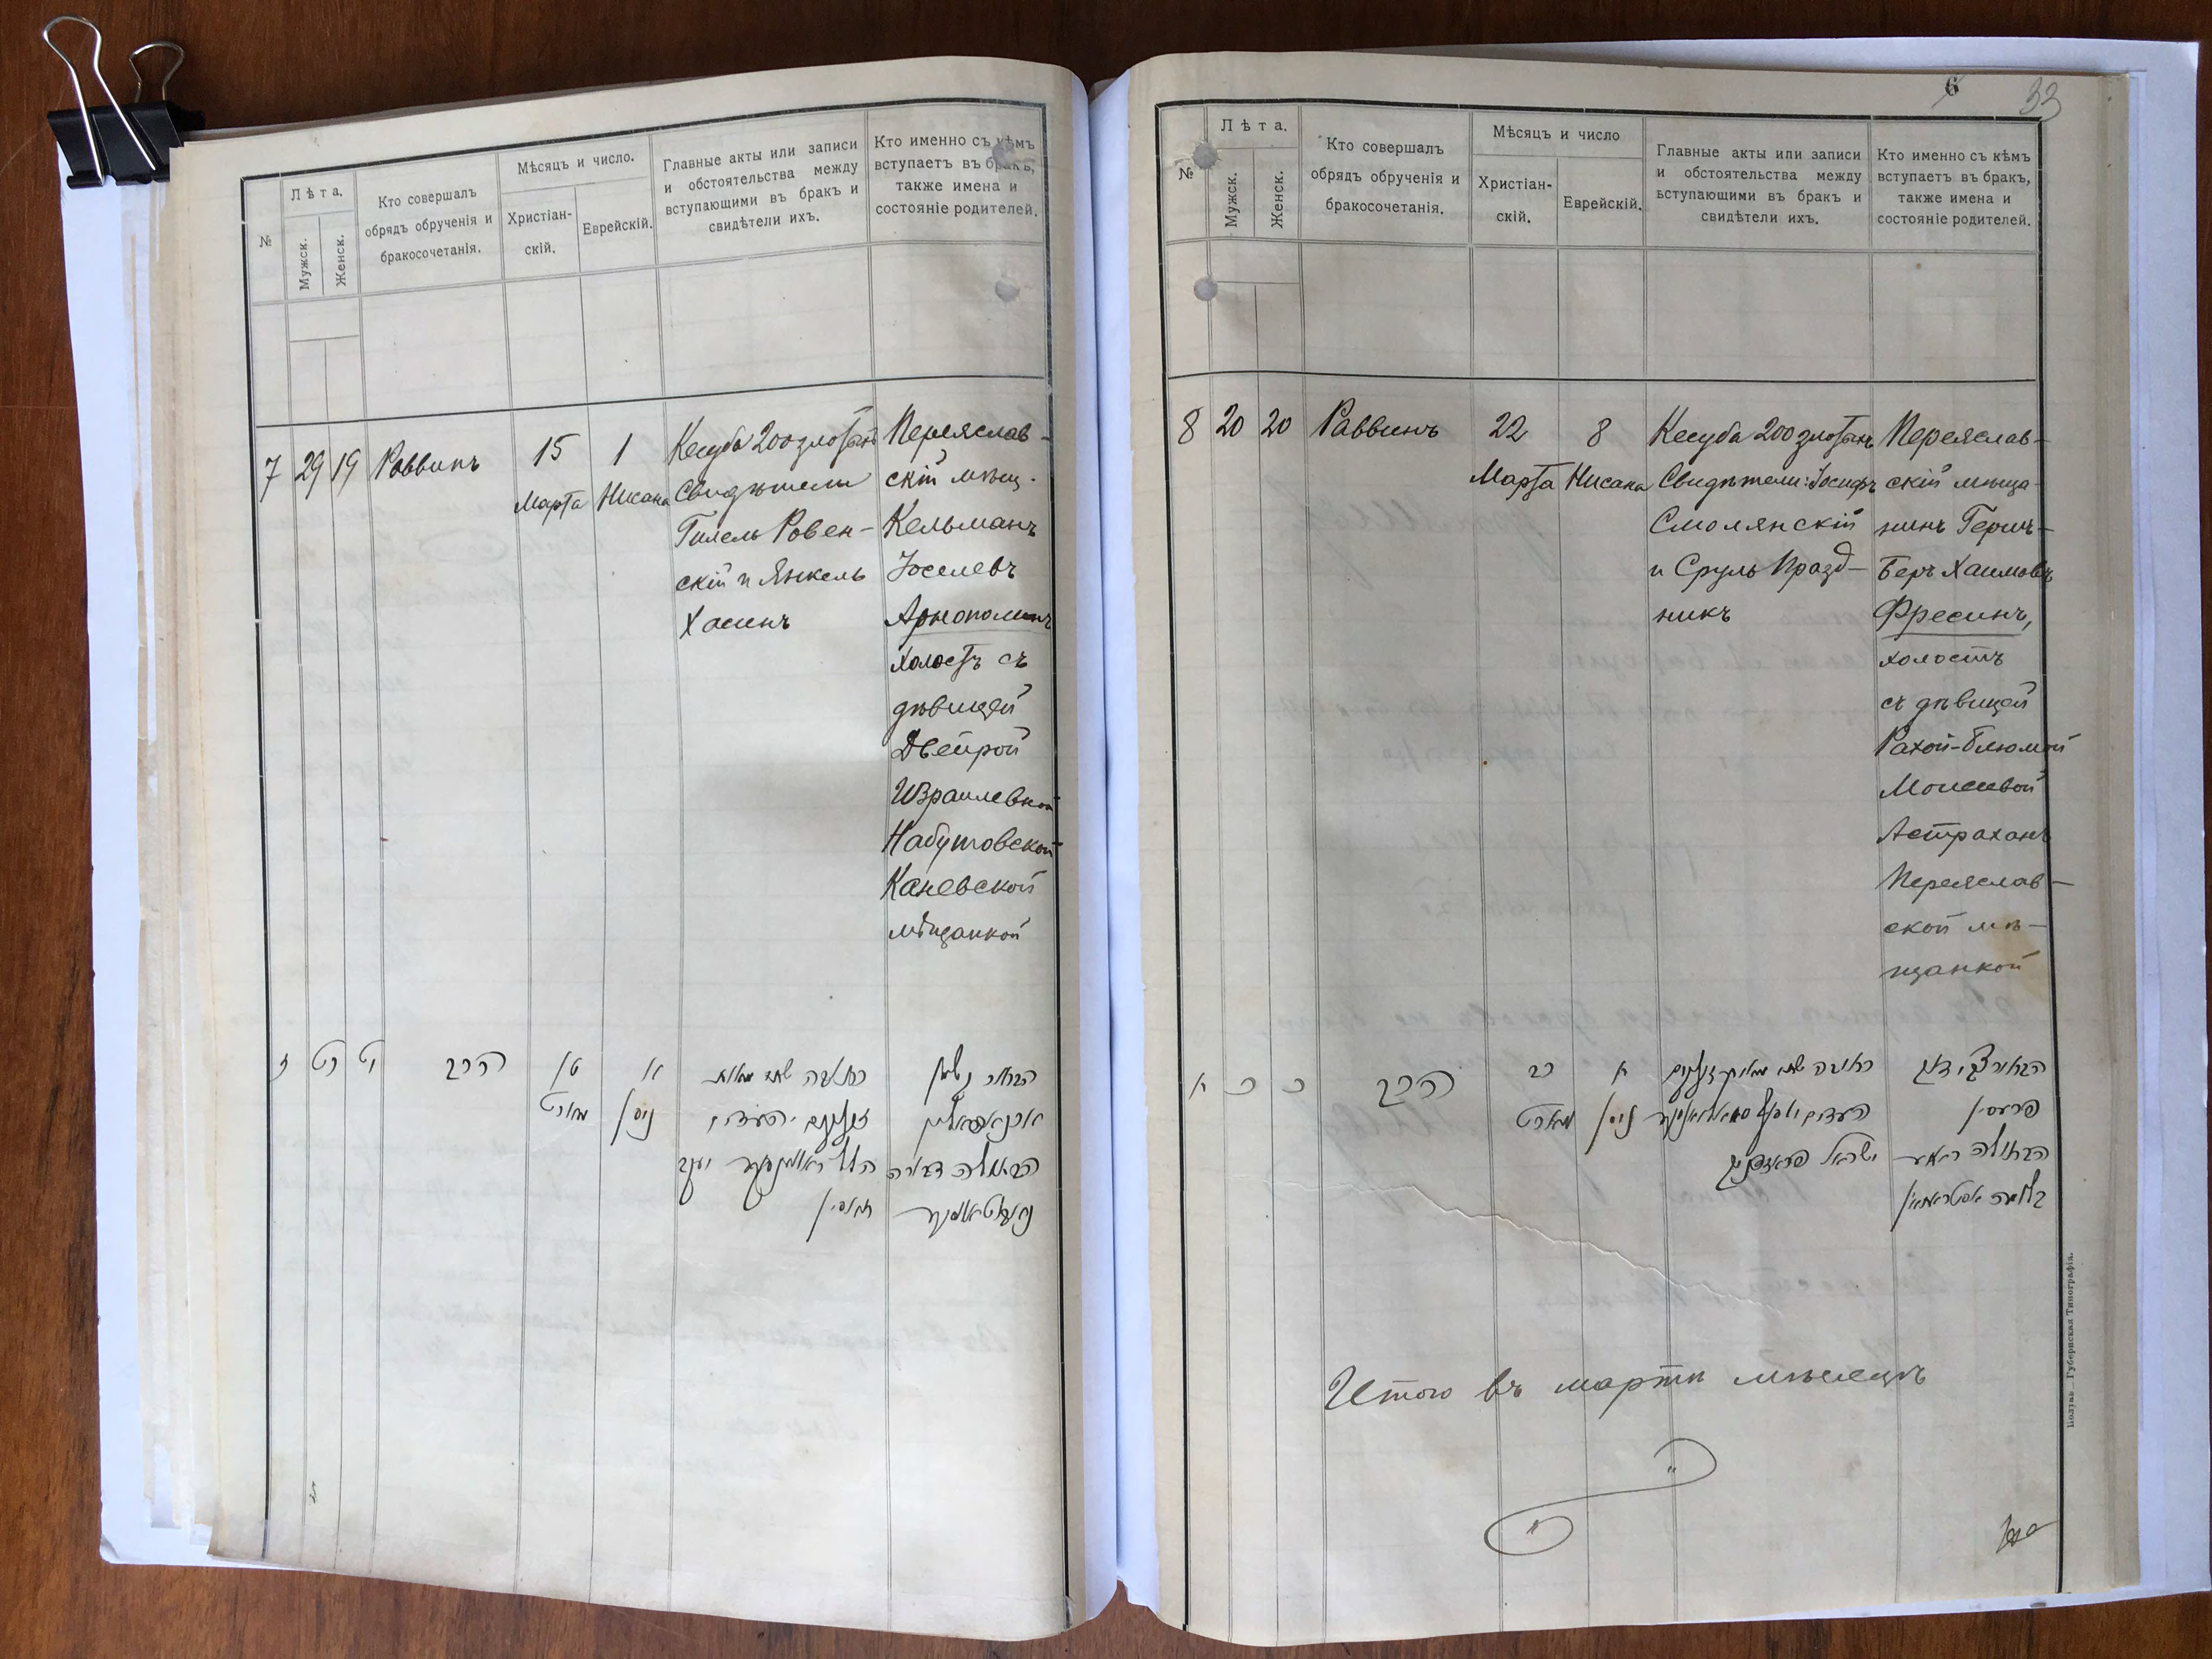 №
Лѣта.
Мужск.
Женск.
Кто совершалъ
обрядъ обрученія и
бракосочетанія.
Мѣсяцъ и число.
Христіан-
скій.
Еврейскій.
Главные акты или записи
и обстоятельства между
вступающими въ бракъ и
свидѣтели ихъ.
Кто именно съ кѣмъ
вступаетъ въ бракъ,
также имена и
состояніе родителей.
7
29
19
Раввинъ
15
Марта
1
Нисана
Кесуба 200 злотыхъ
Свидѣтели
Гилель Ровен-
скій и Янкель
Хасинъ
Переяслав-
скій мѣщ.
Кельманъ
Іоселевъ
холостъ съ
дѣвицей
Двейрой
Израилевной
Набутовской
Каневской
мѣщанкой
ז
כט
יט
הרב
טו
מארט
א
ניסן
6
33
№
Лѣта.
Мужск.
Женск.
Кто совершалъ
обрядъ обрученія и
бракосочетанія.
Мѣсяцъ и число
Христіан-
скій.
Еврейскій.
Главные акты или записи
и обстоятельства между
вступающими въ бракъ и
свидѣтели ихъ.
Кто именно съ кѣмъ
вступаетъ въ бракъ,
также имена и
состояніе родителей.
8
20
20
Раввинъ
22
Марта
8
Нисана
Кесуба 200 злотыхъ
Свидѣтели: Іосифъ
Смолянскій
и Сруль Празд-
никъ
Переяслав-
скій мѣща-
нинъ Гершъ-
Беръ Хаимовъ
Фресинъ,
холостъ
съ дѣвицей
Рахой-Блюмой
Моисеевой
Астраханъ
Переяслав-
ской мѣ-
щанкой
ח
כ
כ
הרב
כב
מארט
ח
ניסן
פרעסין
ישראל
הבתולה
בלומה אסטראחאן
Итого въ мартѣ мѣсяцѣ
Полтава — Губернская Типографія.